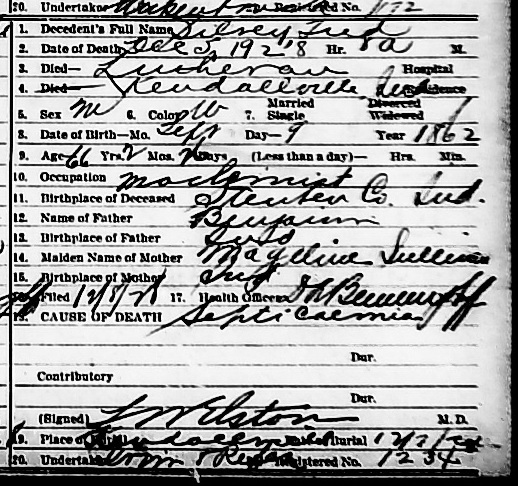 20. Undertaker Registered No. 172
1. Decedent's Full Name
2. Date of Death Dec 5, 1928 Hr. 8 a M.
3. Died— Lutheran Hospital
4. Died— Kendallville Ind Residence
5. Sex M 6. Color W 7. Married Single Divorced Widowed
8. Date of Birth—Mo. Sept Day— 9 Year 1862
9. Age 66 Yrs. 2 Mos. Days (Less than a day)— Hrs. Min.
10. Occupation Machinist
11. Birthplace of Deceased Steuben Co. Ind.
12. Name of Father Benjamin
13. Birthplace of Father
14. Maiden Name of Mother Sullivan
15. Birthplace of Mother
16. Filed 12/8/28 17. Health Officer
18. CAUSE OF DEATH Septicaemia
Dur.
Contributory
Dur.
(Signed) M. D.
19. Place of Burial Kendallville Date of Burial
20. Undertaker Registered No. 1234